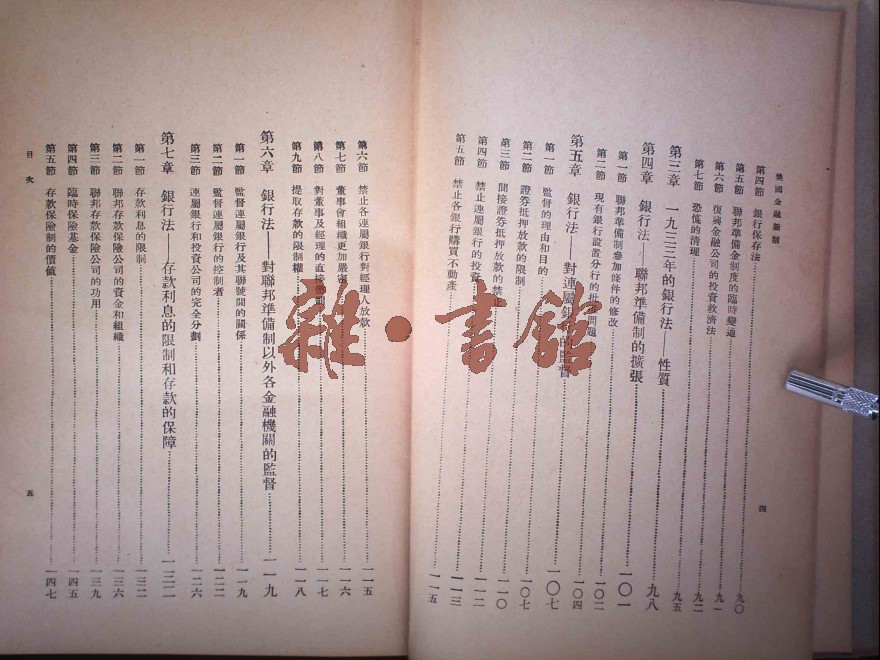 美國金融新制
第四節 銀行保存法 九〇
第五節 聯邦準備金制度的臨時變通 九一
第六節 復興金融公司的投資救濟法 九二
第七節 恐慌的清理 九五
第三章 一九三三年的銀行法——性質 九八
第四章 銀行法——聯邦準備制的擴張 一〇一
第一節 聯邦準備制參加條件的修改 一〇二
第二節 現有銀行設置分行的批准問題 一〇四
第五章 銀行法——對連屬銀行的監督 一〇七
第一節 監督的理由和目的 一〇七
第二節 證券抵押放款的限制 一一〇
第三節 間接證券抵押放款的禁止 一一二
第四節 禁止連屬銀行的投資 一一三
第五節 禁止各銀行購買不動產 一一五
四
第六節 禁止各連屬銀行對經理人放款 一一五
第七節 董事會組織更加嚴密 一一六
第八節 對董事及經理的直接 一一七
第九節 提取存款的限制權 一一八
第六章 銀行法——對聯邦準備制以外各金融機關的監督 一一九
第一節 監督連屬銀行及其聯號間的關係 一一九
第二節 監督連屬銀行的控制者 一二二
第三節 連屬銀行和投資公司的完全分劃 一二六
第七章 銀行法——存款利息的限制和存款的保障 一三二
第一節 存款利息的限制 一三二
第二節 聯邦存款保險公司的資金和組織 一三六
第三節 聯邦存款保險公司的功用 一三九
第四節 臨時保險基金 一四五
第五節 存款保險制的價值 一四七
目次
五
雜·書館